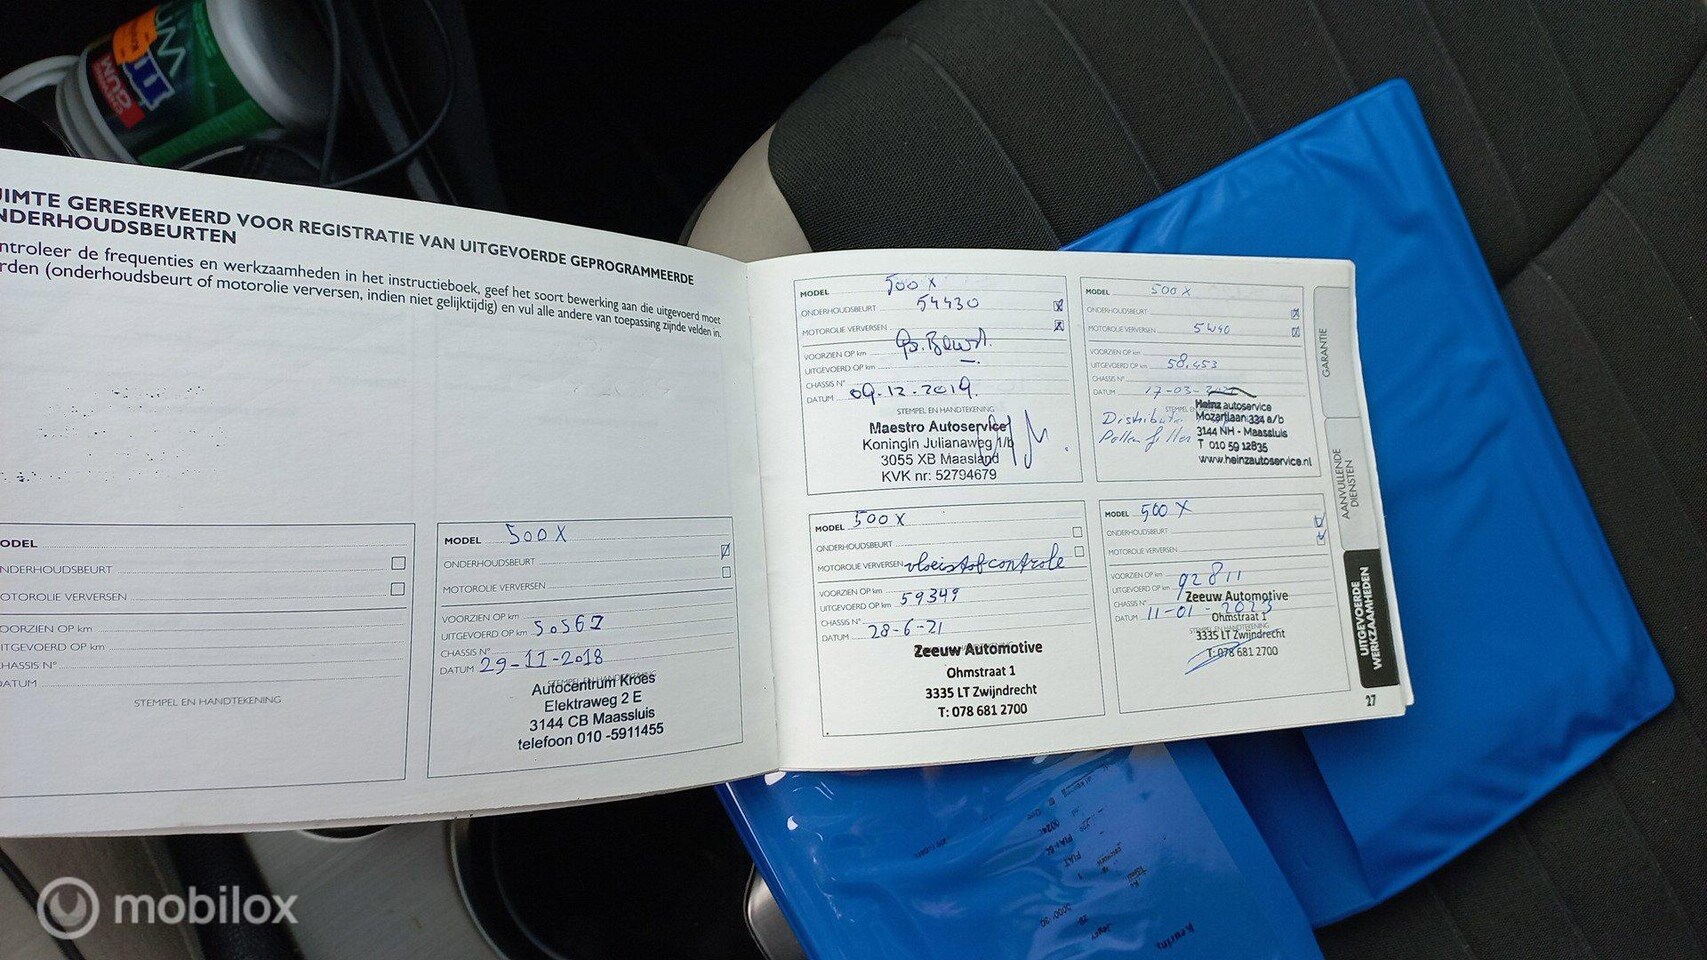 RUIMTE GERESERVEERD VOOR REGISTRATIE VAN UITGEVOERDE GEPROGRAMMEERDE
ONDERHOUDSBEURTEN
ntroleer de frequenties en werkzaamheden in het instructieboek, geef het soort bewerking aan die uitgevoerd moet
rden (onderhoudsbeurt of motorolie verversen, indien niet gelijktijdig) en vul alle andere van toepassing zijnde velden in.
ODEL
NDERHOUDSBEURT
OTOROLIE VERVERSEN
OORZIEN OP km
ITGEVOERD OP km
HASSIS N°
ATUM
STEMPEL EN HANDTEKENING
MODEL 500 X
ONDERHOUDSBEURT
MOTOROLIE VERVERSEN
VOORZIEN OP km
UITGEVOERD OP km 50567
CHASSIS N°
DATUM 29-11-2018
STEMPEL EN HANDTEKENING
Autocentrum Kroes
Elektraweg 2 E
3144 CB Maassluis
telefoon 010 -5911455
MODEL 500 X
ONDERHOUDSBEURT 54430
MOTOROLIE VERVERSEN
VOORZIEN OP km
UITGEVOERD OP km
CHASSIS N°
DATUM 09.12.2019.
STEMPEL EN HANDTEKENING
Maestro Autoservice
Koningin Julianaweg 1/b
3055 XB Maasland
KVK nr: 52794679
MODEL 500 X
ONDERHOUDSBEURT
MOTOROLIE VERVERSEN 5W40
VOORZIEN OP km
UITGEVOERD OP km 58.453
CHASSIS N°
DATUM 17-03-
Heinz autoservice
Mozartlaan 334 a/b
3144 NH - Maassluis
T 010 59 12835
www.heinzautoservice.nl
Pollen filter
MODEL 500 X
ONDERHOUDSBEURT
MOTOROLIE VERVERSEN vloeistofcontrole
VOORZIEN OP km
UITGEVOERD OP km 59349
CHASSIS N°
DATUM 28-6-21
Zeeuw Automotive
Ohmstraat 1
3335 LT Zwijndrecht
T: 078 681 2700
MODEL 500 X
ONDERHOUDSBEURT
MOTOROLIE VERVERSEN
VOORZIEN OP km
UITGEVOERD OP km 92811
CHASSIS N°
DATUM 11-01-2023
Zeeuw Automotive
Ohmstraat 1
STEMPEL EN HANDTEKENING
3335 LT Zwijndrecht
T: 078 681 2700
GARANTIE
AANVULLENDE
DIENSTEN
UITGEVOERDE
WERKZAAMHEDEN
27
mobilox